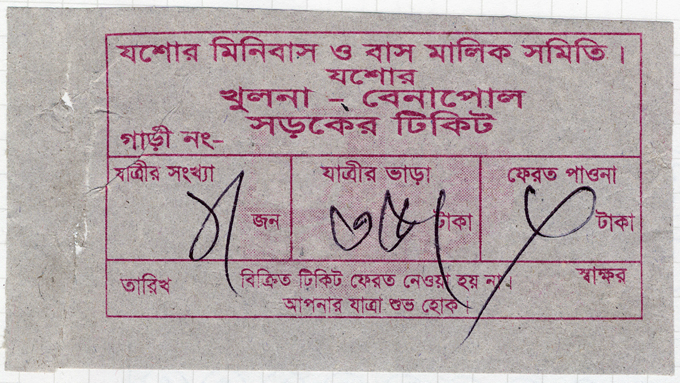 যশোর মিনিবাস ও বাস মালিক সমিতি।
যশোর
খুলনা - বেনাপোল
সড়কের টিকিট
গাড়ী নং-
যাত্রীর সংখ্যা
জন
যাত্রীর ভাড়া
টাকা
ফেরত পাওনা
টাকা
তারিখ
বিক্রিত টিকিট ফেরত নেওয়া হয় না।
আপনার যাত্রা শুভ হোক।
স্বাক্ষর